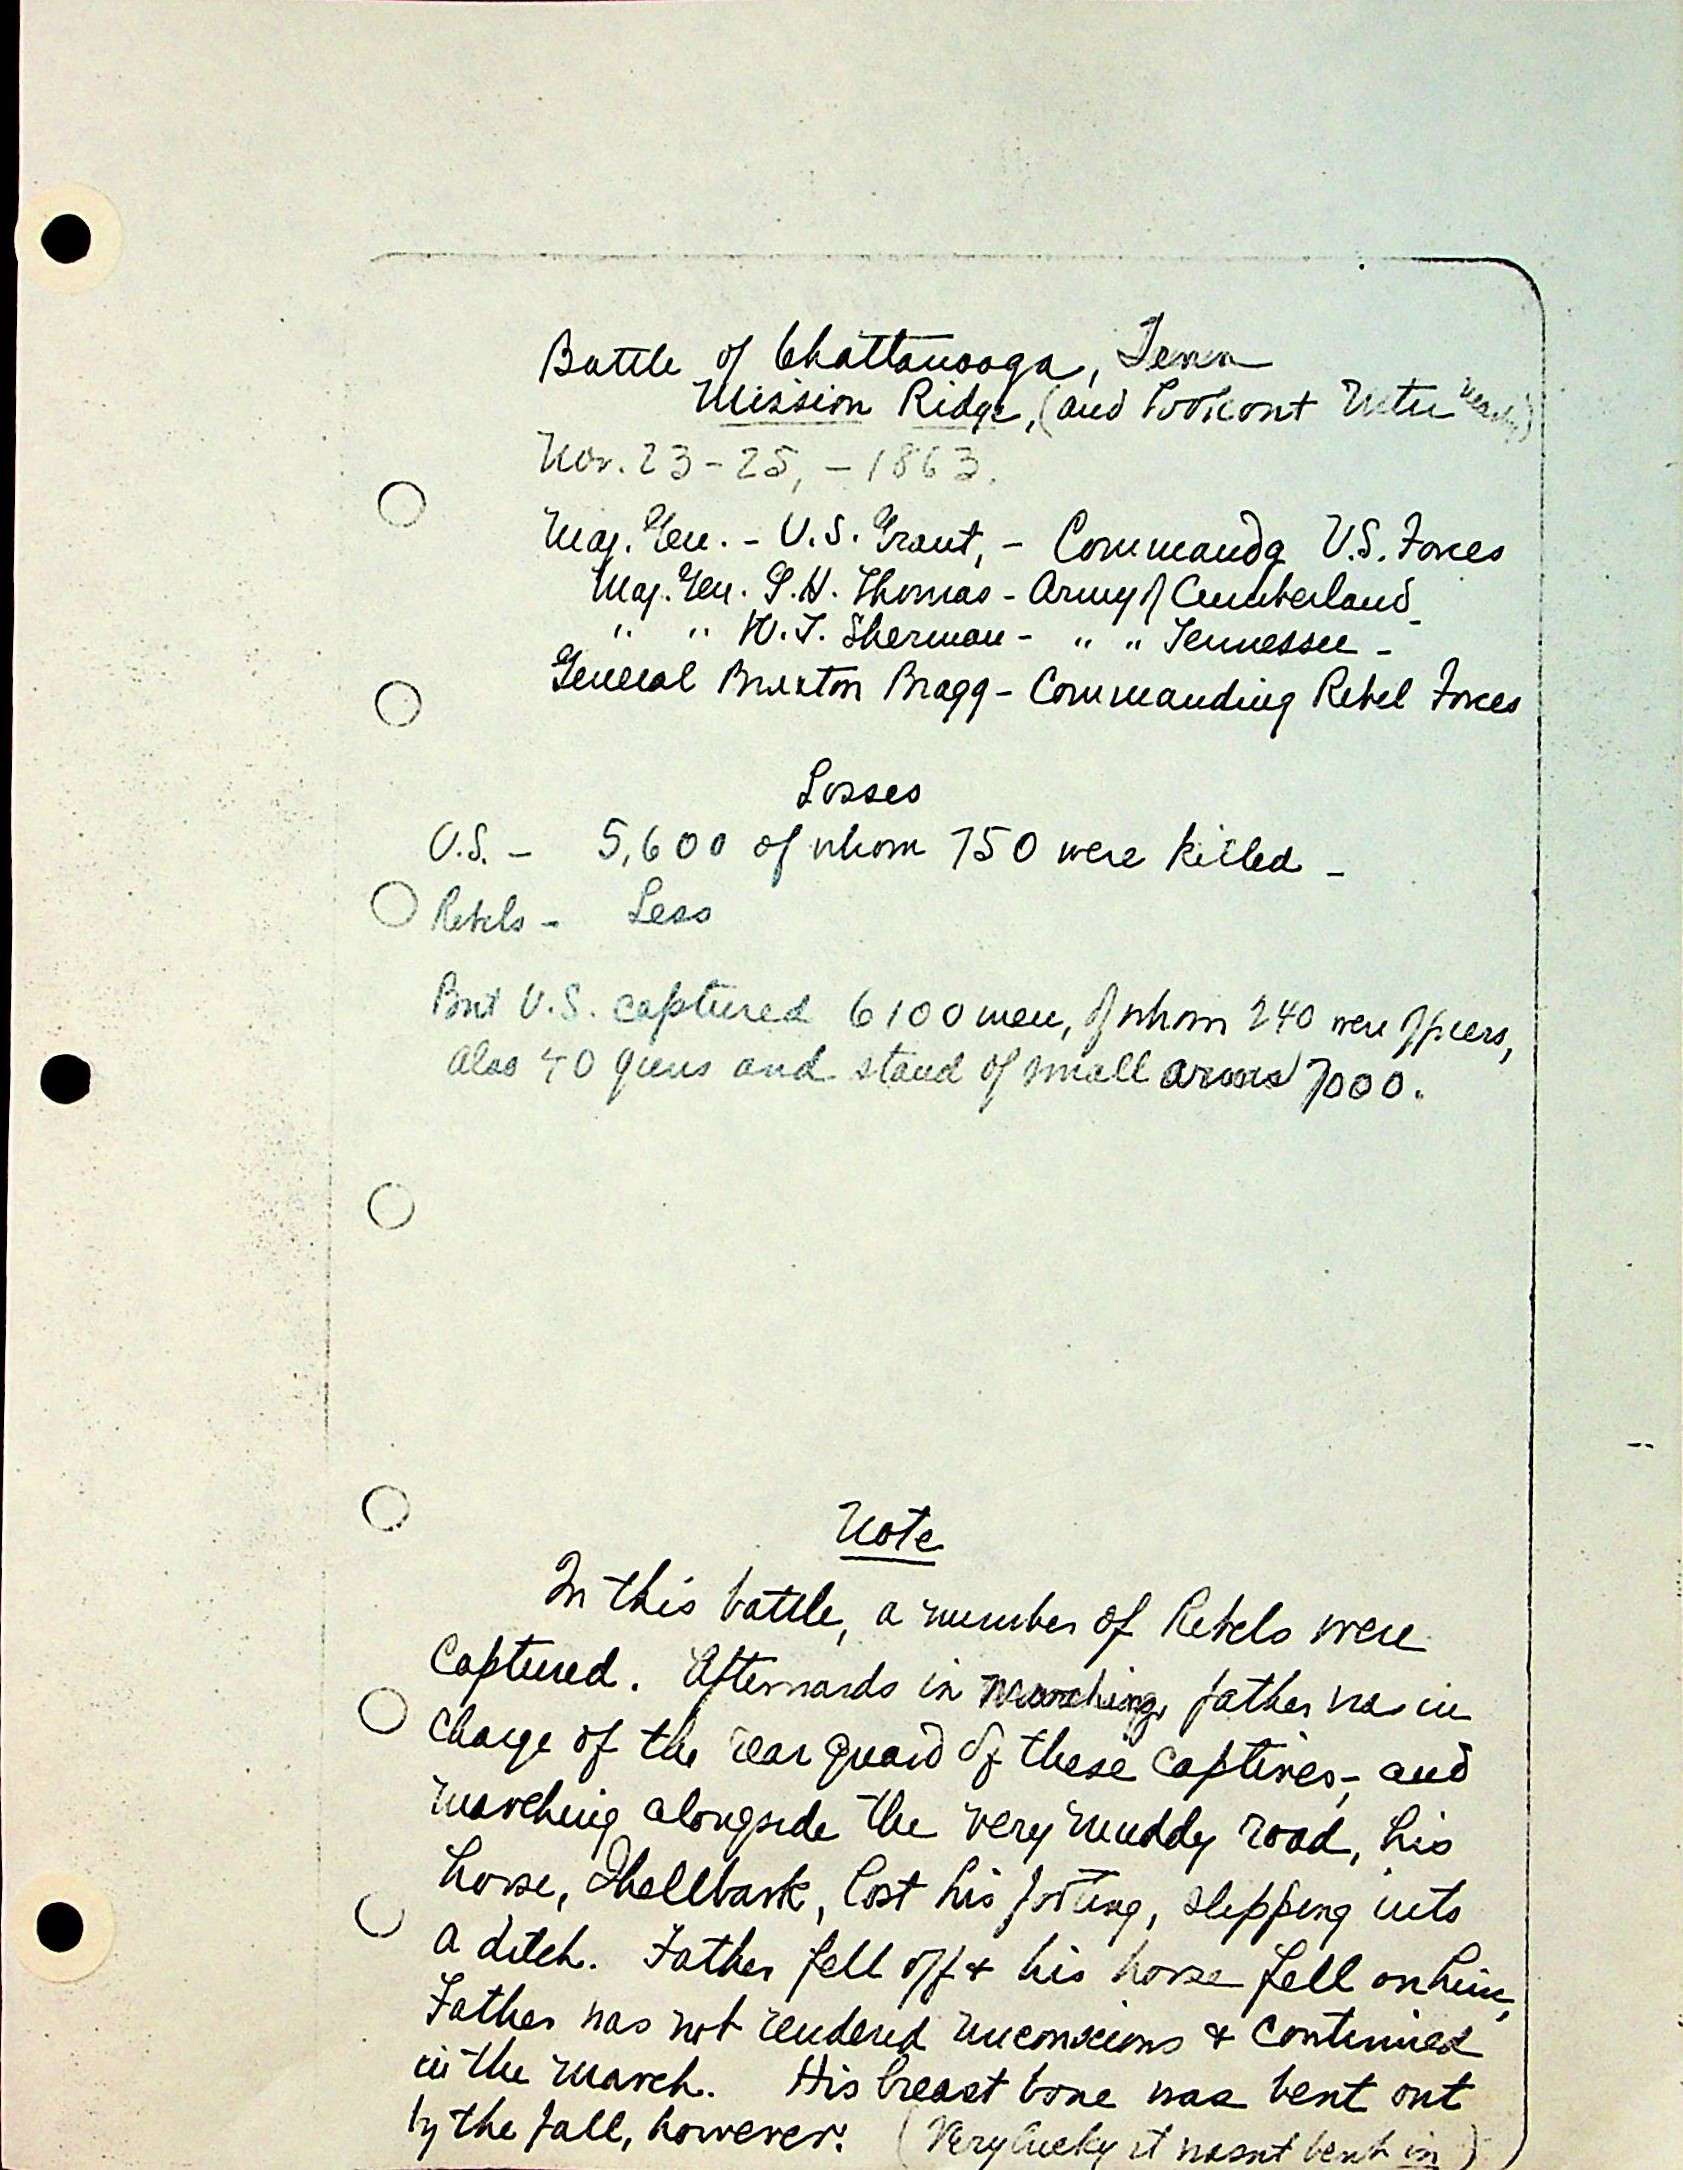 Battle of Chattanooga, Tenn
Mission Ridge, (and Lookout Mtn nearby)
Nov. 23-25, - 1863.
Maj. Gen. - U.S. Grant, - Commandg U.S. Forces
Maj. Gen. G.H. Thomas - Army of Cumberland
" " W.T. Sherman - " " Tennessee -
General Braxton Bragg - Commanding Rebel Forces
Losses
U.S. - 5,600 of whom 750 were killed -
Rebels - Less
But U.S. captured 6100 men, of whom 240 were officers,
also 40 guns and stand of small arms 7000.
Note
In this battle, a number of Rebels were
captured. Afterwards in marching, father was in
charge of the rear guard of these captives, - and
marching alongside the very muddy road, his
horse, Shellbark, lost his footing, slipping into
a ditch. Father fell off & his horse fell on him,
Father was not rendered unconscious & continued
in the march. His breast bone was bent out
by the fall, however. (Very lucky it wasnt bent in)